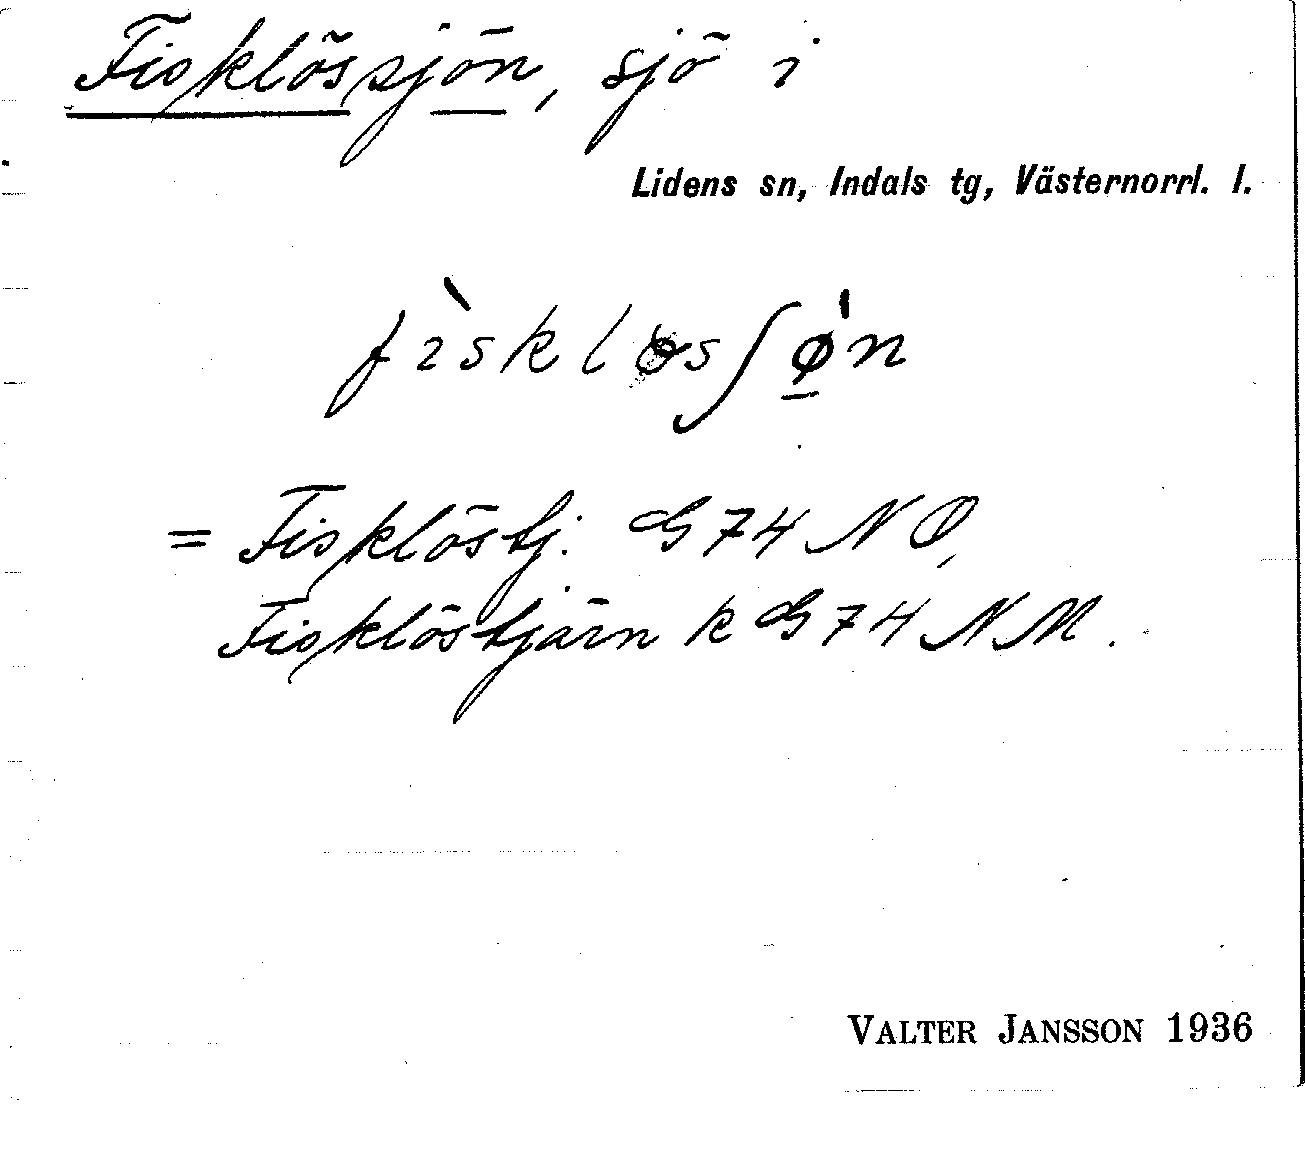 Fisklössjön, sjö i
Lidens sn, Indals tg, Västernorrl. l.
= Fisklöstj. G 74 NO,
Fisklöstjärn k G 74 NM.
VALTER JANSSON 1936